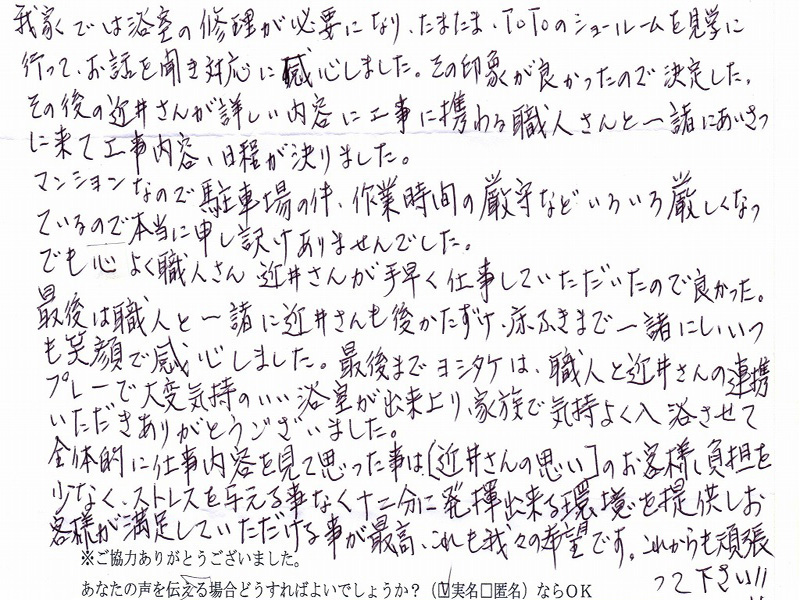 我家では浴室の修理が必要になり、たまたま、TOTOのショールームを見学に
行って、お話を聞き対応に感心しました。その印象が良かったので決定した。
その後の近井さんが詳しい内容に工事に携わる職人さんと一諸にあいさつ
に来て工事内容、日程が決りました。
マンションなので駐車場の件、作業時間の厳守などいろいろ厳しくなっ
ているので本当に申し訳けありませんでした。
でも心よく職人さん 近井さんが手早く仕事していただいたので良かった。
最後は職人と一諸に近井さんも後かたずけ、床ふきまで一諸にしいつ
も笑顔で感心しました。最後までヨシタケは、職人と近井さんの連携
プレーで大変気持のいい浴室が出来上り、家族で気持よく入浴させて
いただきありがとうございました。
全体的に仕事内容を見て思った事は[近井さんの思い]のお客様し負担を
少なく、ストレスを与える事なく十二分に発揮出来る環境を提供しお
客様が満足していただける事が最高、これも我々の希望です。これからも頑張
って下さい!!
※ご協力ありがとうございました。
あなたの声を伝える場合どうすればよいでしょうか?(☑実名□匿名)ならOK